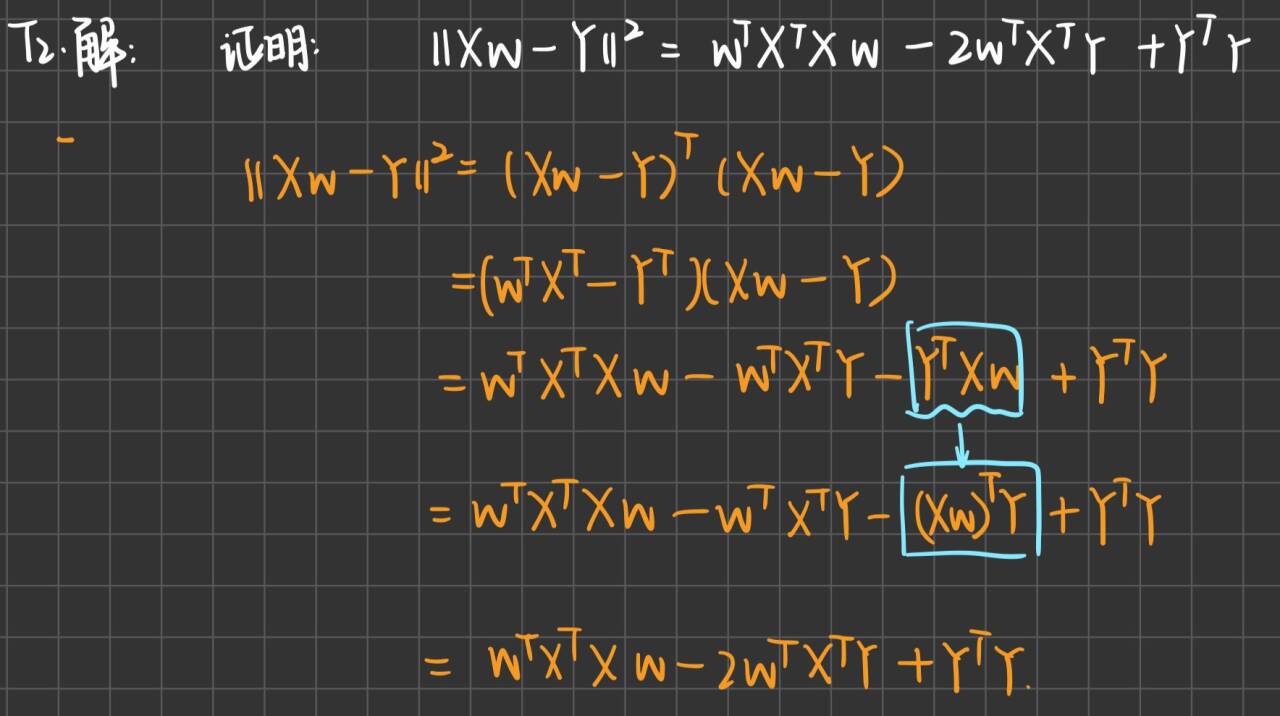 T₂.解: 证明: ||Xw - Y||² = wᵀXᵀXw - 2wᵀXᵀY + YᵀY
||Xw - Y||² = (Xw - Y)ᵀ (Xw - Y)
= (wᵀXᵀ - Yᵀ)(Xw - Y)
= wᵀXᵀXw - wᵀXᵀY - YᵀXw + YᵀY
= wᵀXᵀXw - wᵀXᵀY - (Xw)ᵀY + YᵀY
= wᵀXᵀXw - 2wᵀXᵀY + YᵀY.